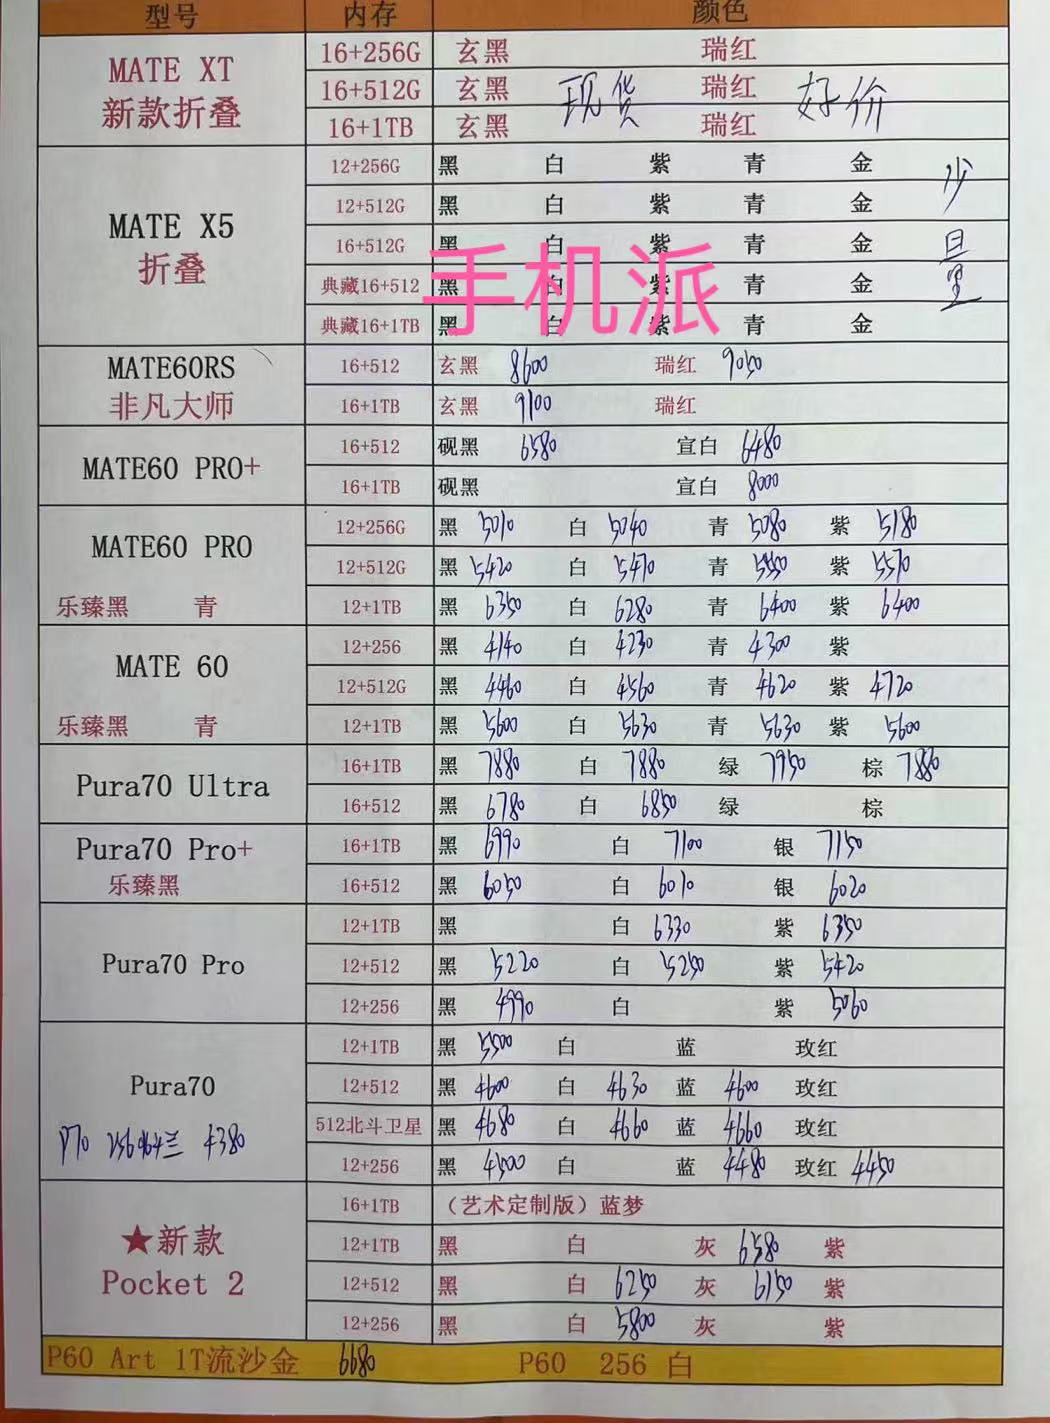 型号 内存 颜色
MATE XT 新款折叠
16+256G 玄黑 瑞红
16+512G 玄黑 现货 瑞红 好价
16+1TB 玄黑 瑞红
MATE X5 折叠
12+256G 黑 白 紫 青 金 少
12+512G 黑 白 紫 青 金
16+512G 黑 白 紫 青 金
典藏16+512 黑 白 紫 青 金
典藏16+1TB 黑 白 紫 青 金
手机派
MATE60RS 非凡大师
16+512 玄黑 8600 瑞红 9050
16+1TB 玄黑 9100 瑞红
MATE60 PRO+
16+512 砚黑 6580 宣白 6480
16+1TB 砚黑 宣白 8000
MATE60 PRO
12+256G 黑 5010 白 5040 青 5080 紫 5180
12+512G 黑 5420 白 5470 青 5550 紫 5570
乐臻黑 青
12+1TB 黑 6350 白 6280 青 6400 紫 6400
MATE 60
12+256 黑 4140 白 4230 青 4300 紫
12+512G 黑 4460 白 4560 青 4620 紫 4720
乐臻黑 青
12+1TB 黑 5600 白 5630 青 5630 紫 5600
Pura70 Ultra
16+1TB 黑 7880 白 7880 绿 7950 棕 7880
16+512 黑 6780 白 6850 绿 棕
Pura70 Pro+
乐臻黑
16+1TB 黑 6990 白 7100 银 7150
16+512 黑 6050 白 6010 银 6020
Pura70 Pro
12+1TB 黑 白 6330 紫 6350
12+512 黑 5220 白 5250 紫 5420
12+256 黑 4990 白 紫 5060
Pura70
P70 256 4380
12+1TB 黑 5500 白 蓝 玫红
12+512 黑 4600 白 4630 蓝 4600 玫红
512北斗卫星 黑 4680 白 4660 蓝 4660 玫红
12+256 黑 4500 白 蓝 4480 玫红 4450
★新款
Pocket 2
16+1TB (艺术定制版)蓝梦
12+1TB 黑 白 灰 6580 紫
12+512 黑 白 6250 灰 6150 紫
12+256 黑 白 5800 灰 紫
P60 Art 1T流沙金 6680 P60 256 白